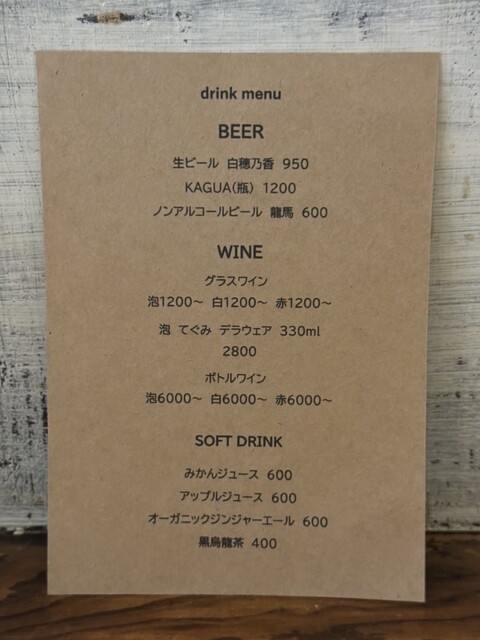 drink menu
BEER
生ビール 白穂乃香 950
KAGUA(瓶) 1200
ノンアルコールビール 龍馬 600
WINE
グラスワイン
泡1200〜 白1200〜 赤1200〜
泡 てぐみ デラウェア 330ml
2800
ボトルワイン
泡6000〜 白6000〜 赤6000〜
SOFT DRINK
みかんジュース 600
アップルジュース 600
オーガニックジンジャーエール 600
黒烏龍茶 400